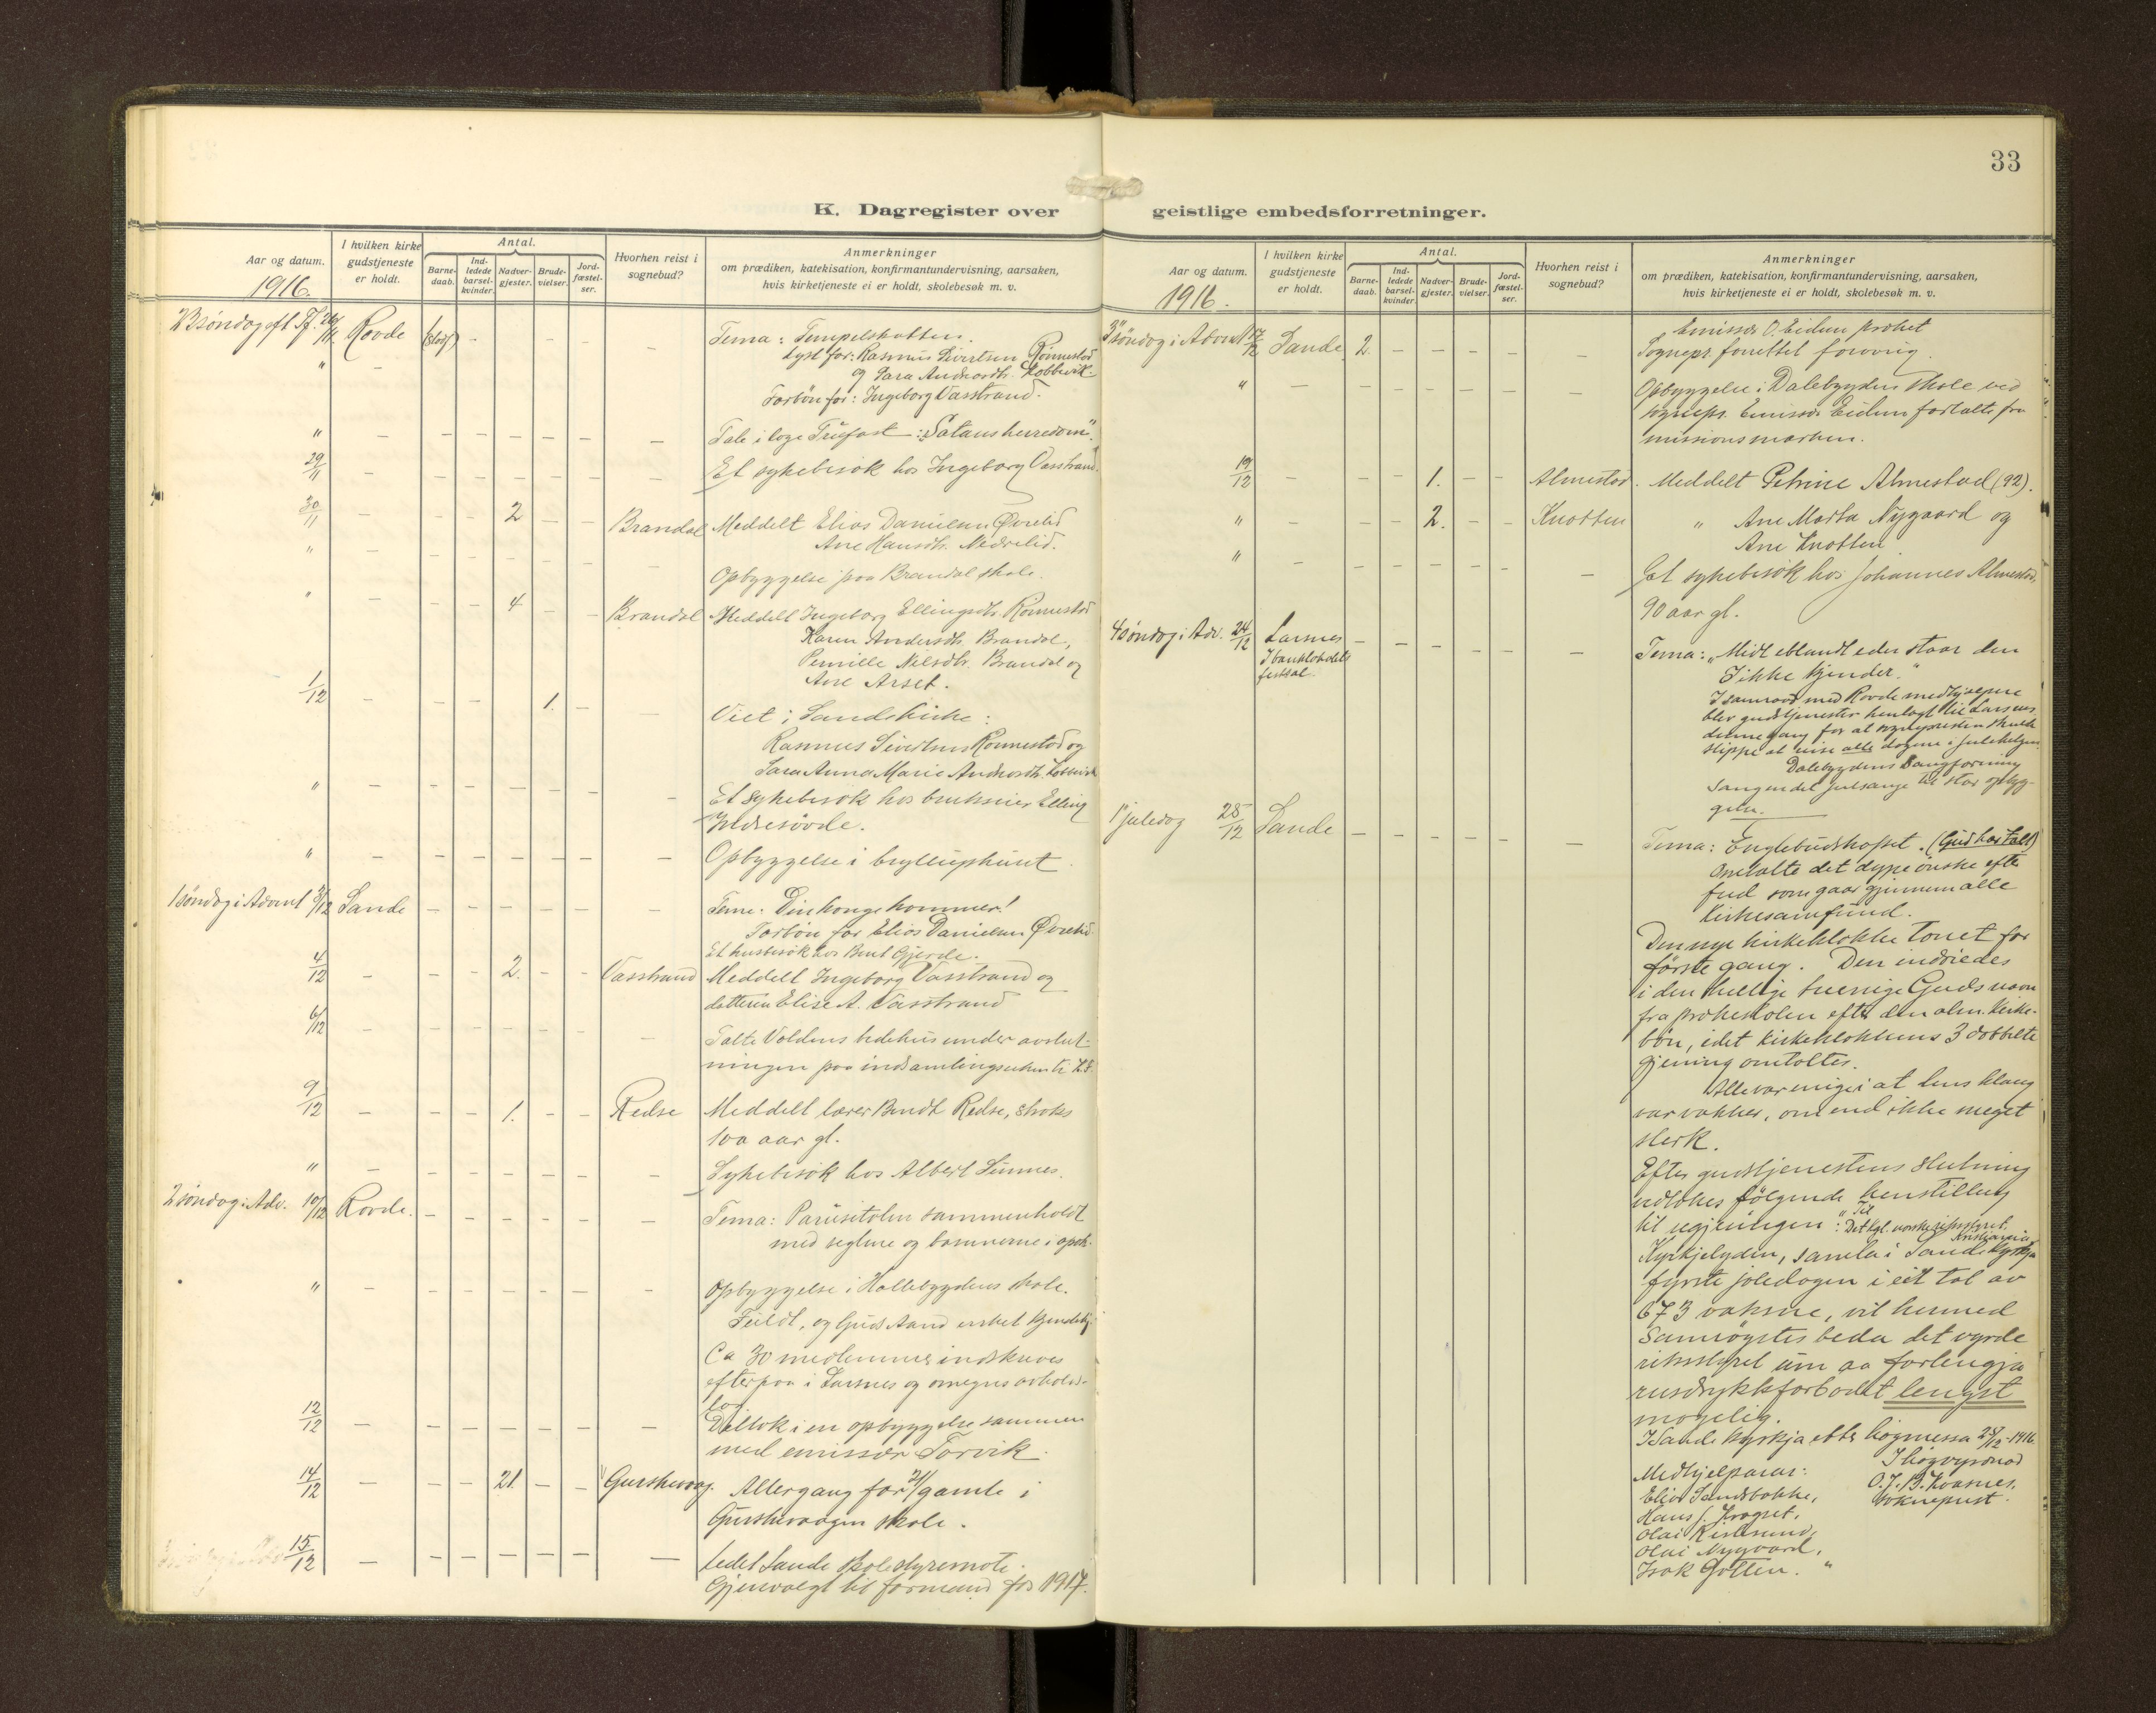 33
K. Dagregister over geistlige embedsforretninger.
Aar og datum.
1916.
I hvilken kirke gudstjeneste er holdt.
Antal.
Barne-daab.
Ind-ledede barsel-kvinder.
Nadver-gjester.
Brude-vielser.
Jord-fæstel-ser.
Hvorhen reist i sognebud?
Anmerkninger
om prædiken, katekisation, konfirmantundervisning, aarsaken,
hvis kirketjeneste ei er holdt, skolebesøk m. v.
23 søndag eft Tf. 26/11 Rovde - - - - Tema: Tempelskatten.
Lyst for: Rasmus Sivertsen Rønnestad
og Sara Andreasdtr. Kobbevik
" - Forbøn for: Ingeborg Vasstrand.
" - - - - - - - Tale i loge Trufast: "Satans herredom".
29/11 - - - - - - - Et sykebesøk hos Ingeborg Vasstrand.
30/11 - - - 2 - - Brandal Meddelt Elias Danielsen Øvrelid
Ane Hansdtr. Nedrelid.
" - - - - - - - Opbyggelse paa Brandal skole.
" - - - 4 - - Brandal Meddelt Ingeborg Ellingsdtr. Rønnestad
Karen Andersdtr. Brandal,
Pernille Nilsdtr. Brandal og
Ane Arset.
1/12 - - - - 1. - - Viet i Sande kirke:
Rasmus Sivertsen Rønnestad og
Sara Anna Marie Andreasdtr. Kobbevik
" - - - - - - - Et sykebesøk hos Elling
" - - - - - - - Opbyggelse i bryllupshuset.
1 søndag i Advent 3/12 Sande - - - - - - Tema: Din konge kommer!
Forbøn for Elias Danielsen Øvrelid.
Et husbesøk hos Bent Gjerde.
4/12 - - - 2. - - Vasstrand Meddelt Ingeborg Vasstrand og
datteren Elise A. Vasstrand
6/12 - - - - - - - Talte Voldens bedehus under avslut-
ningen paa indsamlingsuken
9/12 - - - 1. - - Redse Meddelt lærer Bendt Redse, straks
100 aar gl.
" - - - - - - - Sykebesøk hos Albert Sunnes.
2 søndag i Adv. 10/12 Rovde. - - - - - - Tema: Parusitalen sammenholdt
med seglene og basunerne i apok.
" - - - - - - - Opbyggelse i Hallebygdens skole.
Fuldt, og Guds Aand virket kjendelig.
Ca 30 medlemmer indskreves
efterpaa i Larsnes og omegns avholds-
lag
12/12 - - - - - - - Deltok i en opbyggelse sammen
med emissær Torvik.
14/12 - - - 21. - - Gurskevaag. Altergang for 21 gamle i
Gurskevaagen skole.
15/12 - - - - - - - Ledet Sande skolestyremøte.
Gjenvalgt til formand for 1917.
Aar og datum.
1916.
I hvilken kirke gudstjeneste er holdt.
Antal.
Barne-daab.
Ind-ledede barsel-kvinder.
Nadver-gjester.
Brude-vielser.
Jord-fæstel-ser.
Hvorhen reist i sognebud?
Anmerkninger
om prædiken, katekisation, konfirmantundervisning, aarsaken,
hvis kirketjeneste ei er holdt, skolebesøk m. v.
3 søndag i Advent 17/12 Sande 2. - - - - - Emissær O. Eidem præket
Sognepr. forrettet forøvrig.
" - - - - - - - Opbyggelse i Dalebygdens skole ved
sognepr. Emissær Eidem fortalte fra
missionsmarken.
19/12 - - - 1. - - Almestad. Meddelt Petrine Almestad (92).
" - - - 2. - - Knotten " Ane Marta Nygaard og
Ane Knotten.
" - - - - - - - Et sykebesøk hos Johannes Almestad,
90 aar gl.
4 søndag i Adv. 24/12 Larsnes - - - - - - Tema: "Midt iblandt eder staar den
I banklokalets
festsal.
I ikke kjender."
I samraad med Rovde medhjælpere
blev gudstjenesten henlagt til Larsnes
denne gang for at sognepresten skulde
slippe at reise alle dagene i julehelgen.
Dalebygdens Sangforening
sang endel julsange til stor opbyg-
gelse.
1 juledag 25/12 Sande - - - - - - Tema: Englebudskapet. (Gud har talt)
Omtalte det dype ønske efter
fred som gaar gjennem alle
kirkesamfund.
Den nye kirkeklokke tonet for
første gang. Den indviedes
i den hellige treenige Guds navn
fra prækestolen efter den alm. kirke-
bøn, idet kirkeklokkens 3 dobbelte
gjerning omtaltes.
Alle var enige i at dens klang
var vakker, om end ikke meget
sterk.
Efter gudstjenestens slutning
vedtokes følgende henstilling
til regjeringen: "Til
Det kgl. norske riksstyret,
Kristiania
Kyrkjelyden, samla i Sande kyrkja
fyrste joledagen i eit tal av
673 vaksne, vil hermed
samrøystes beda det vyrde
riksstyret um aa forlengja
rusdrykkforbodet lengst
mogeleg.
I Sande kyrkja etter høgmessa 25/12-1916.
I høgvyrdnad
O. J. B. Kvasnes,
sokneprest.
Medhjelparar:
Elias Sandsbakke,
Hans J. Krogset,
Olai Kielesund,
Olai Nygaard,
Isak Gotten. "